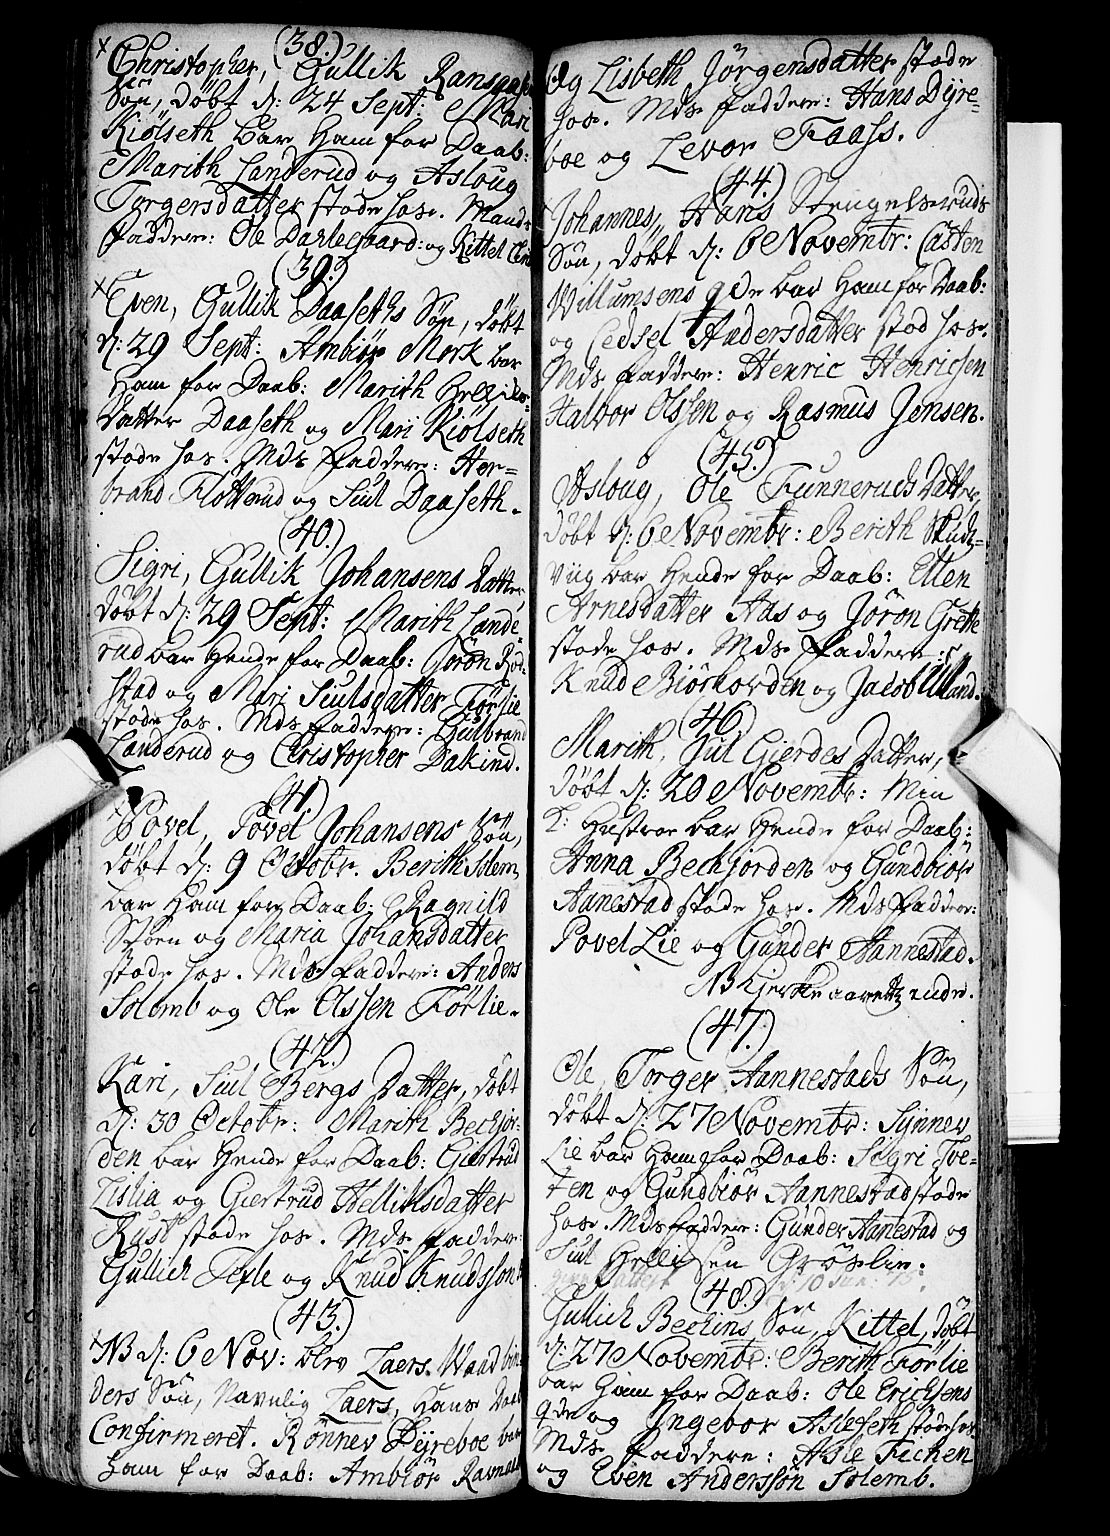 (38.)
Christopher, Gullik
Søn, døbt d: 24 Sept: Mari
Kiølseth bar Ham for Daab:
Marith Landerud og Asloug
Torgersdatter stode hos. Mands
Faddere: Ole Dahlegaard: og Kittel
(39.)
Even, Gullik Daaseths Søn, døbt
d: 29 Sept: Ambiør Mork bar
Ham for Daab: Marith
Datter Daaseth og Mari Kiølseth
stode hos. Mds Faddere: Her-
brand Flotterud og Siul Daaseth.
(40.)
Sigri, Gullik Johansens Datter,
døbt d: 29 Sept: Marith Lande-
rud bar Hende for Daab: Jøron Rød-
stad og Mari Siulsdatter Førlie
stode hos. Mds Faddere: Gulbrand
Landerud og Christopher Dokind.
(41.)
Povel, Povel Johansens Søn,
døbt d: 9 Octobr. Berith Solem
bar Ham for Daab: Ragnild
Støen og Maria Johansdatter
stode hos. Mds Faddere: Anders
Solemb og Ole Olssen Førlie.
(42.)
Kari, Siul Bergs Datter, døbt
d: 30 Octobr: Marith Bechjor-
den bar Hende for Daab: Giertrud
Lislia og Giertrud Hellihsdatter
Rust stode hos. Mds Faddere:
Gullich Tefle og Knud Knudssøn
(43.)
NB d: 6 Nov: blev Laers Waadbin-
ders Søn, Navnlig Laers, Hans Daab
Confirmeret. Rønnev Dyreboe bar
Ham for Daab: Ambiør
Og Lisbeth Jörgensdatter stode
hos. Mds Faddere: Hans Dyre-
boe og Levor Faass.
(44.)
Johannes, Hans Strugelseruds
Søn, døbt d: 6 Novembr: Casten
Willumsens qde bar Ham for Daab:
og Cedsel Andersdatter stod hos.
Mds Faddere: Henric Henricsen
Halvor Olssen og Rasmus Jensen.
(45.)
Asloug, Ole Funneruds Datter,
døbt d: 6 Novembr: Berith Skinds-
viig bar Hende for Daab: Ellen
Arnesdatter Aas og Jøron Grette
stode hos. Mds Faddere:
Knud Biørkorden og Jacob Ulland.
(46.)
Marith, Jul Gierdes Datter,
døbt d: 20 Novembr: Min
K: Hustroe bar Hende for Daab:
Anna Bechjorden og Gundbiør
Aanestad stode hos. Mds Faddere:
Povel Lie og Gunder Aannestad.
NB Kierkeaarets ende.
(47.)
Ole, Torger Aannestads Søn,
døbt d: 27 Novembr: Synnev
Lie bar Ham for Daab: Sigri Tve-
ten og Gundbiør Aannestad stode
hos. Mds Faddere: Gunder Aanestad og
Siul Grøslie.
(48.)
Gullich Bechins Søn, Kittel, døbt
d: 27 Novembr: Berith Førlie
bar Ham for Daab: Ole Erichsens
qde og Ingebor Aslesen stode hos
Mds Faddere: Asle Fichen
og Even Anderssøn Solemb.